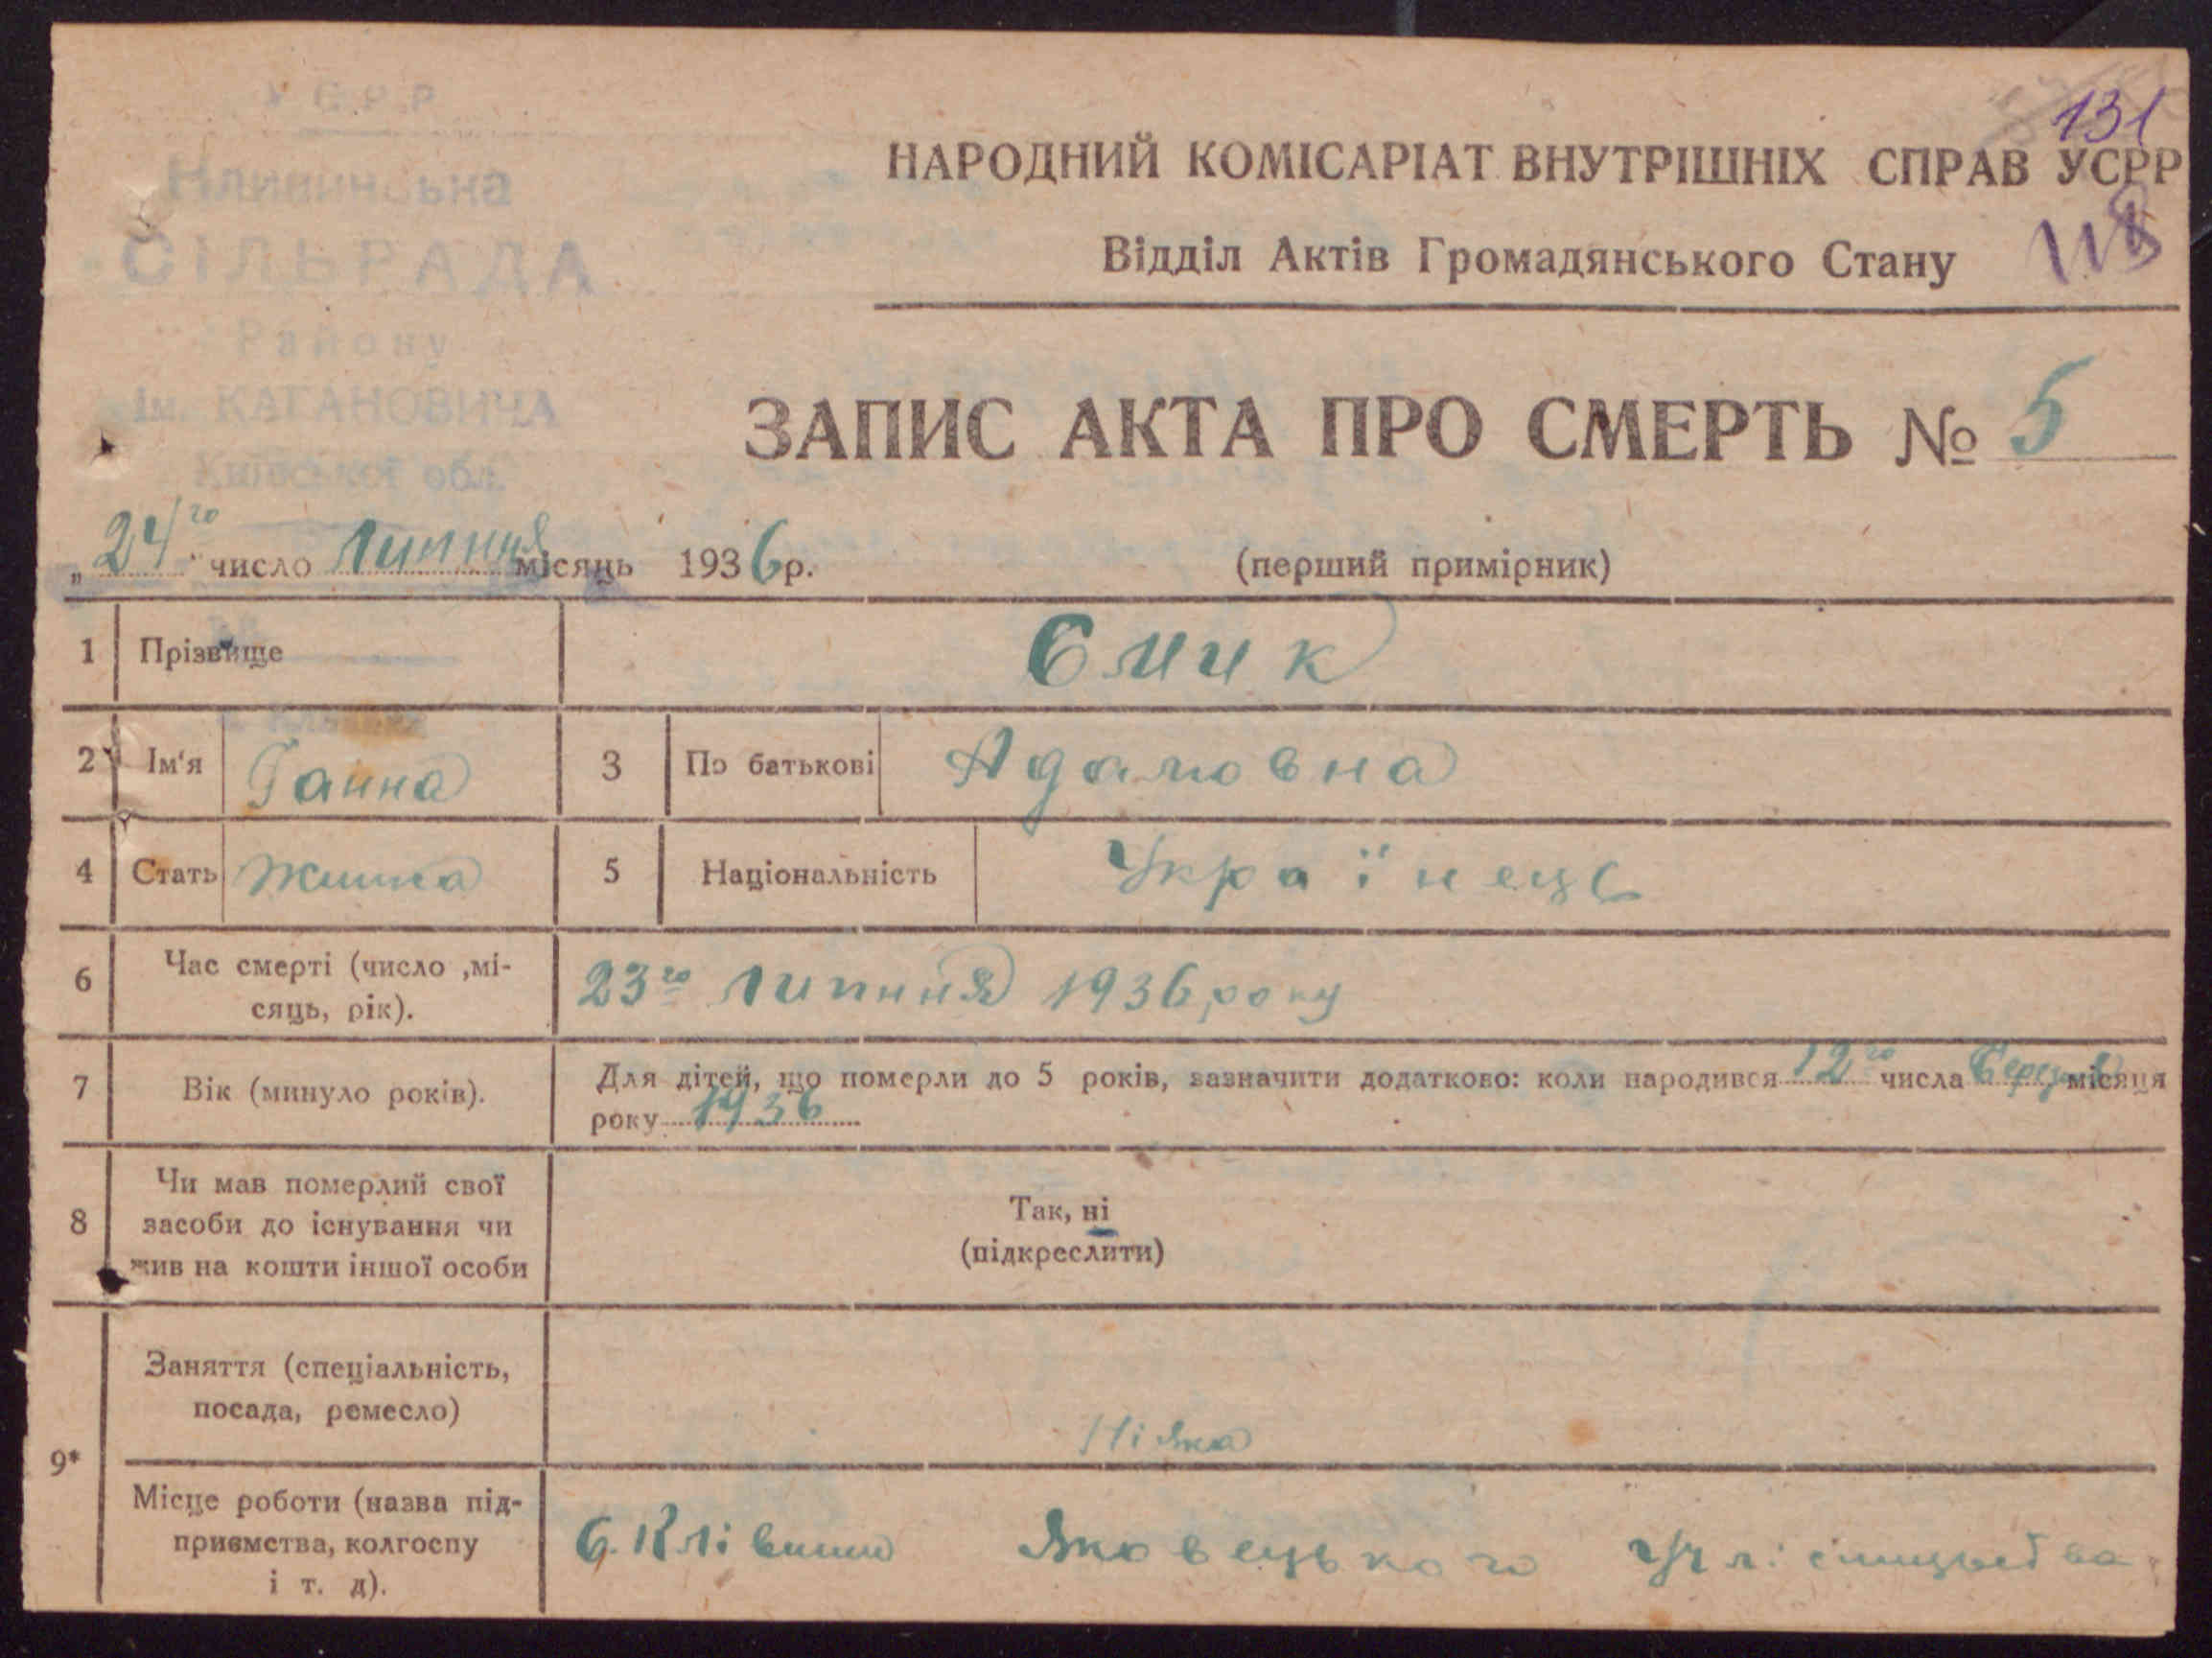 У.С.Р.Р
131
НАРОДНИЙ КОМІСАРІАТ ВНУТРІШНІХ СПРАВ УСРР
118
СІЛЬРАДА
Відділ Актів Громадянського Стану
Району
ім. КАГАНОВИЧА
ЗАПИС АКТА ПРО СМЕРТЬ № 5
Київської обл.
„24го“ число Липня місяць 1936 р. (перший примірник)
1 Прізвище Смик
2 Ім'я Ганна 3 По батькові Адамовна
4 Стать Жинка 5 Національність Українець
6 Час смерті (число ,мі-
сяць, рік). 23го Липння 1936 року
7 Вік (минуло років). Для дітей, що померли до 5 років, зазначити додатково: коли народився 12го числа Березня місяця
року 1936
8 Чи мав померлий свої
засоби до існування чи
жив на кошти іншої особи
Так, ні
(підкреслити)
9* Заняття (спеціальність,
посада, ремесло) Ніяка
Місце роботи (назва під-
приємства, колгоспу
і т. д). С. Клівини Яковецького